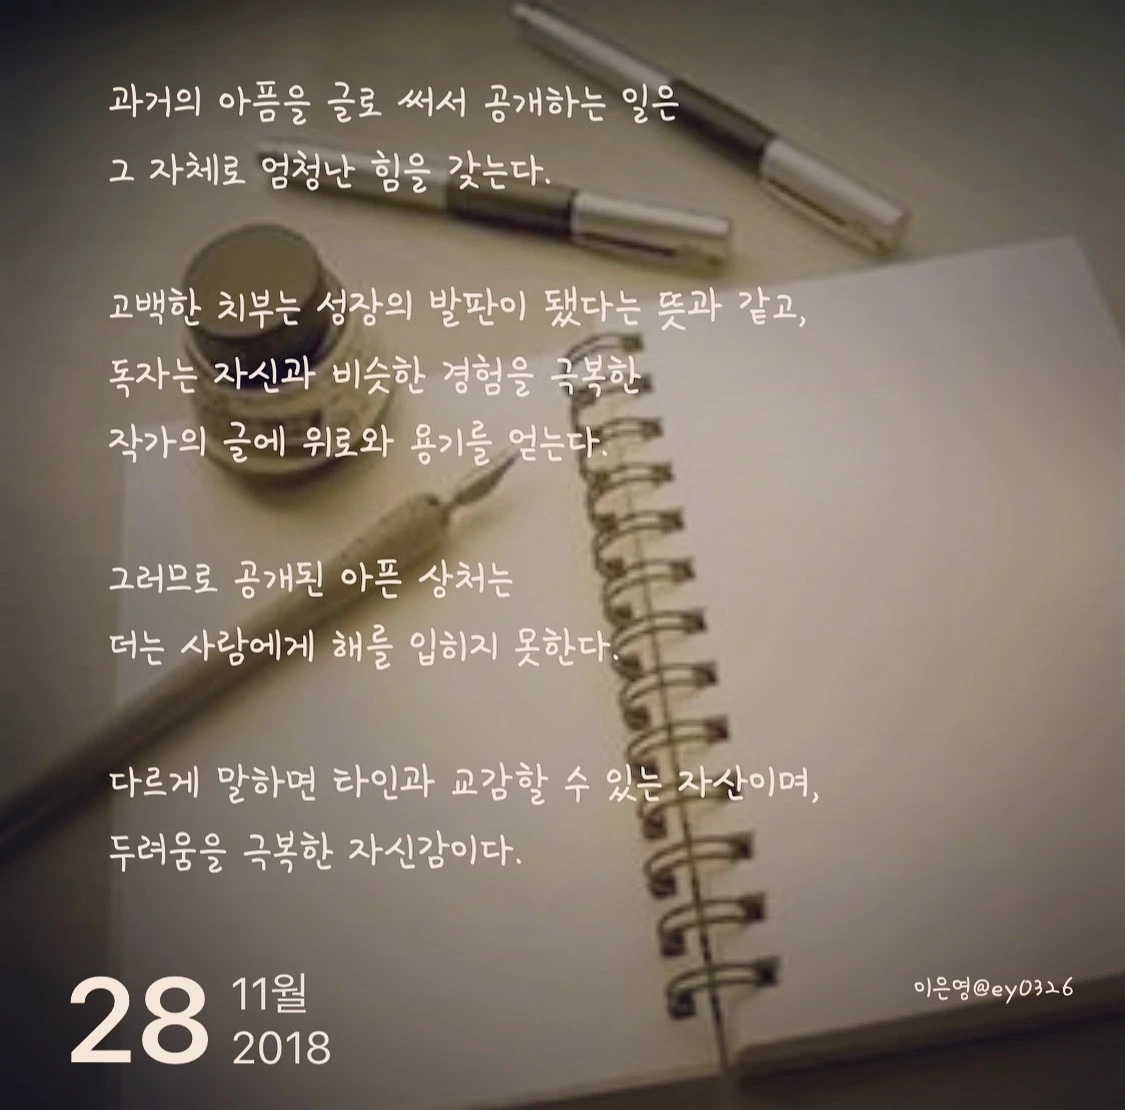 과거의 아픔을 글로 써서 공개하는 일은
그 자체로 엄청난 힘을 갖는다.
고백한 치부는 성장의 발판이 됐다는 뜻과 같고,
독자는 자신과 비슷한 경험을 극복한
작가의 글에 위로와 용기를 얻는다.
그러므로 공개된 아픈 상처는
더는 사람에게 해를 입히지 못한다.
다르게 말하면 타인과 교감할 수 있는 자산이며,
두려움을 극복한 자신감이다.
28
11월
2018
이은영@ey0326